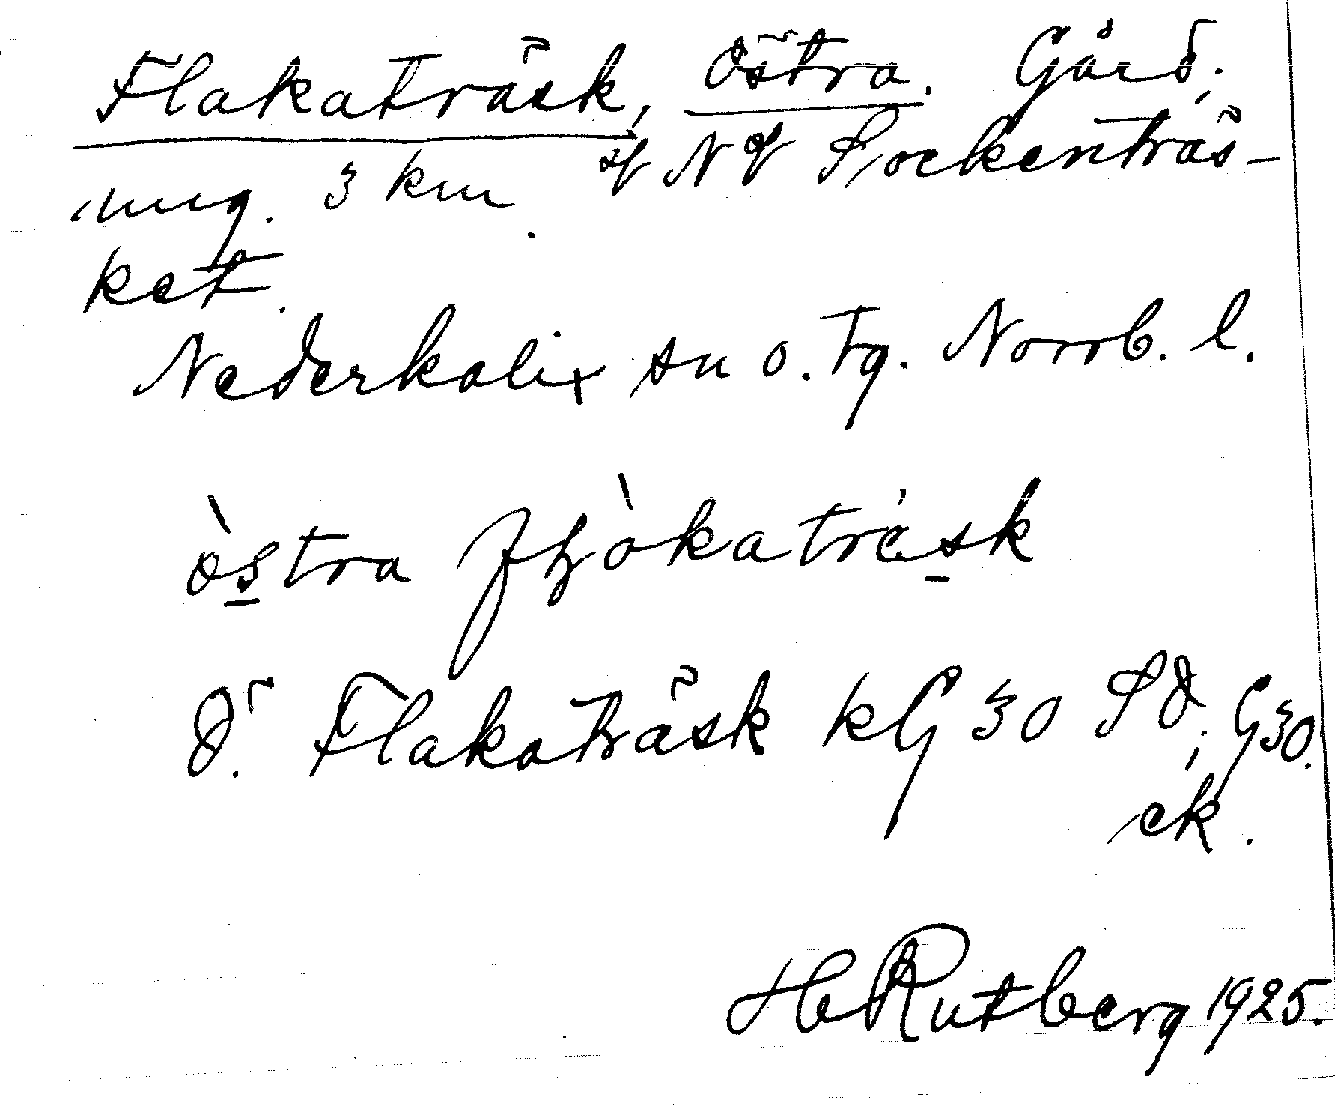 Flakaträsk, Östra. Gård,
ung. 3 km. af N af Sockenträs-
ket.
Nederkalix sn o. tg. Norrb. l.
òstra fḥòkaträsk
Ö. Flakaträsk kG 30 SV; G30.
ek.
H Rutberg 1925.